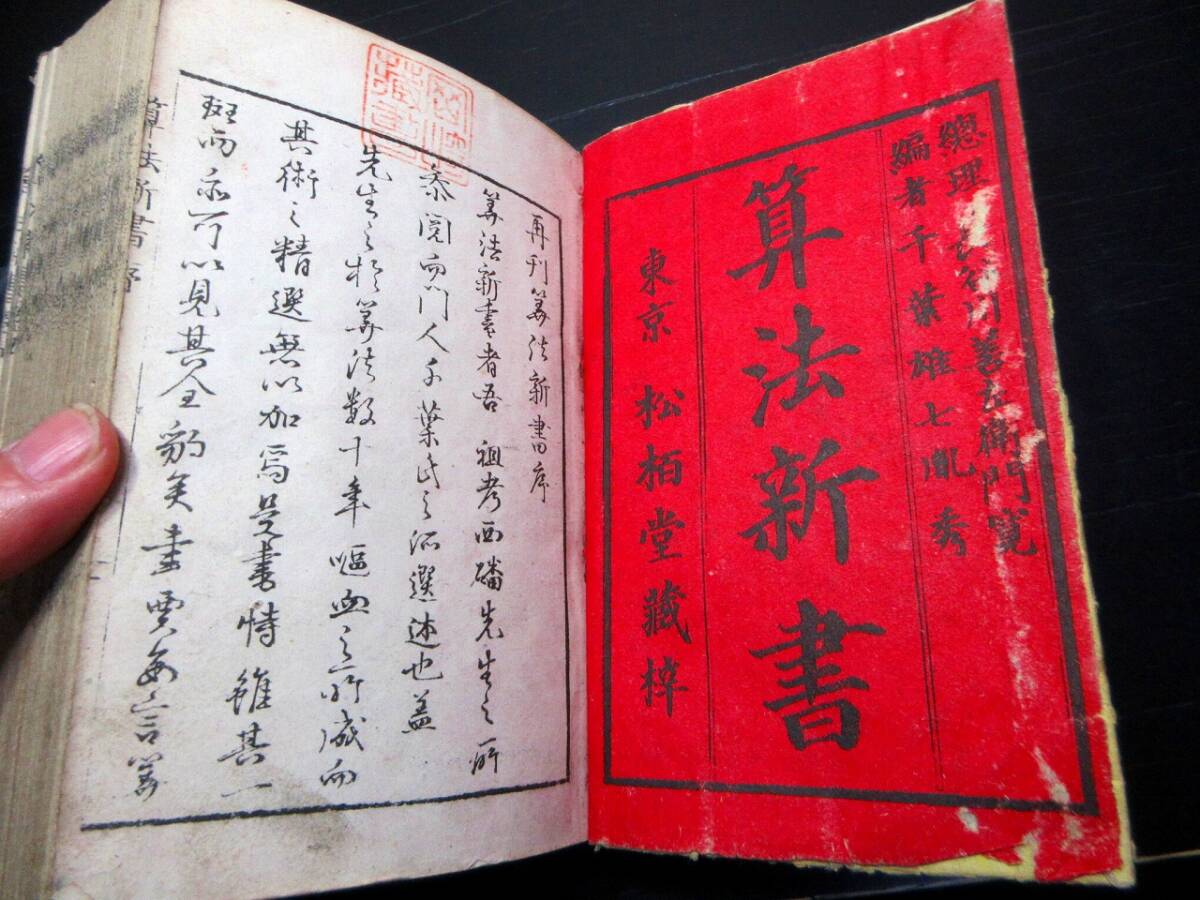 總理 長谷川善左衛門寛
編者 千葉雄七胤秀
算法新書
東京 松栢堂藏梓
再刊算法新書序
算法新書者吾 祖考西磻先生之所
叅閲而門人千葉氏之所選述也蓋
先生之於算法数十年嘔血之所成而
其術之精選無以加焉是書特雖其一
斑而亦可以見其全豹矣書賈每言算
算法新書序
藏書